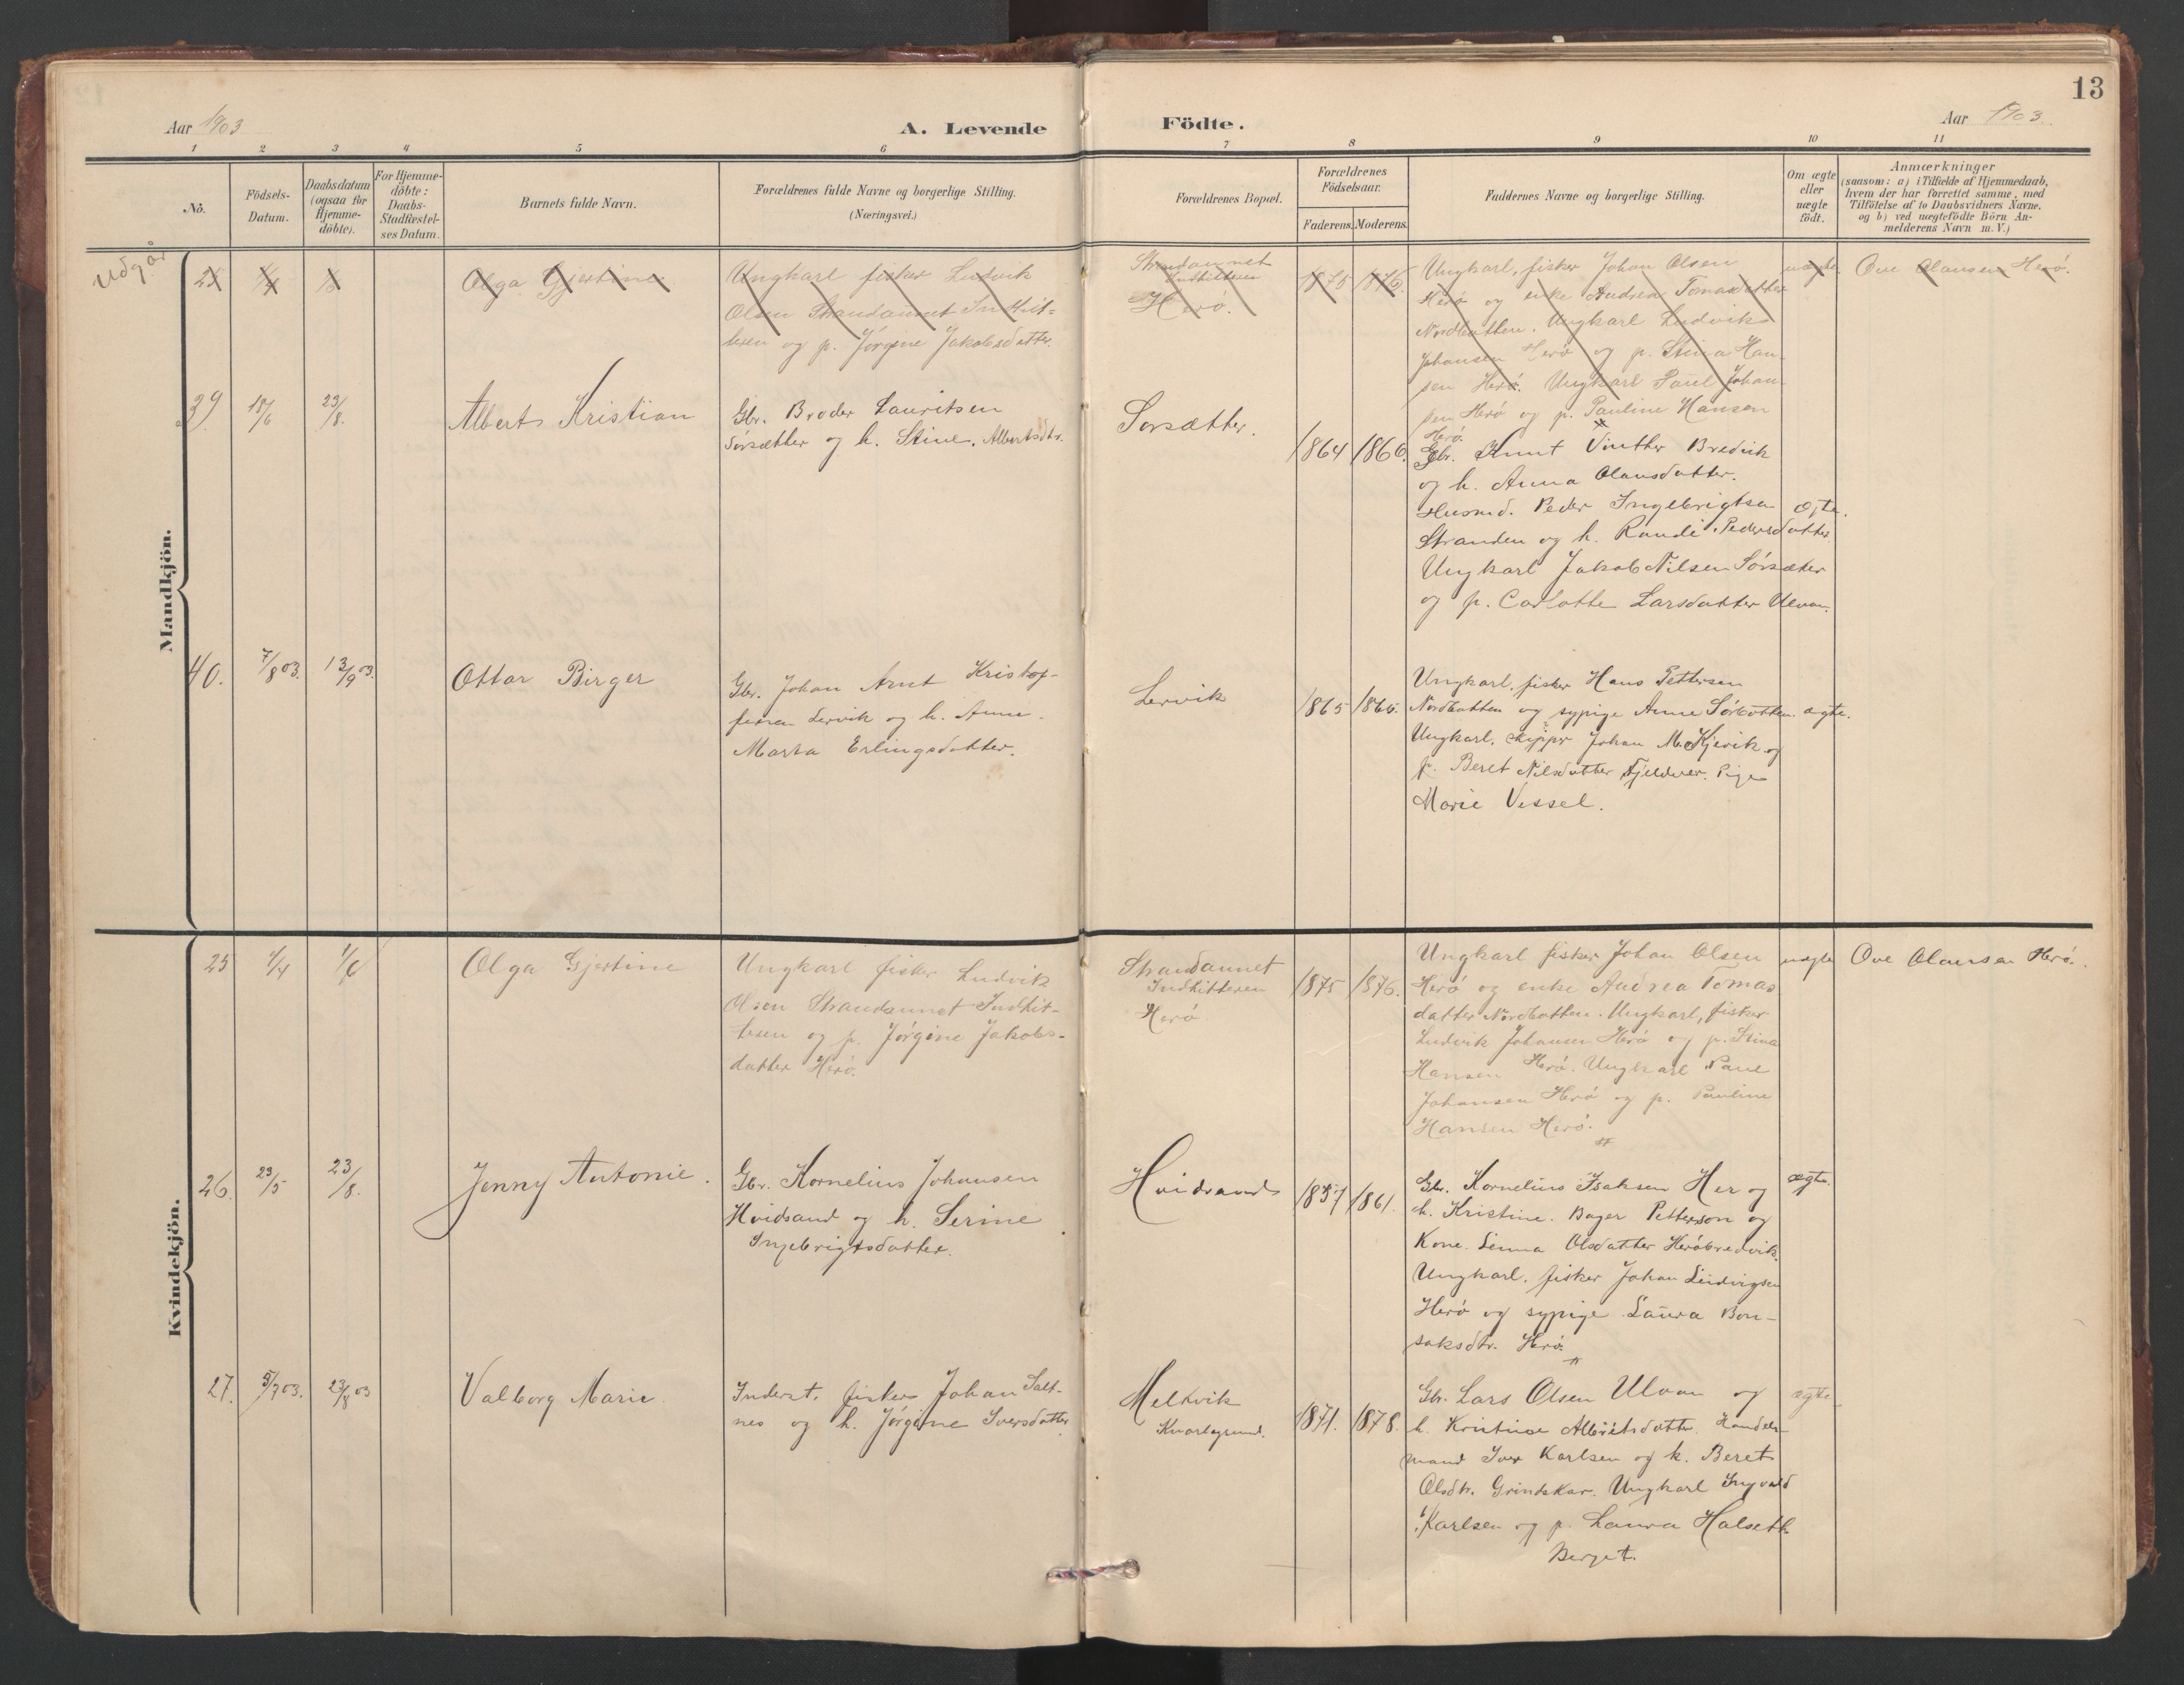 13
Aar 1903
A. Levende
Födte.
Aar 1903.
1 2 3 4 5 6 7 8 9 10 11
No.
Födsels-
Datum.
Daabsdatum
(ogsaa for
Hjemme-
döbte).
For Hjemme-
döbte:
Daabs-
Stadfæstel-
ses Datum.
Barnets fulde Navn.
Forældrenes fulde Navne og borgerlige Stilling.
(Næringsvei.)
Forældrenes Bopæl.
Forældrenes
Födselsaar.
Faderens. Moderens.
Faddernes Navne og borgerlige Stilling.
Om ægte
eller
uægte
födt.
Anmærkninger
(saasom: a) i Tilfælde af Hjemmedaab,
hvem der har forrettet samme, med
Tilföielse af to Daabsvidners Navne,
og b) ved uægtefödte Börn An-
melderens Navn m. V.)
Mandkjön.
Udgår
25
Olga Gjertine
Ungkarl fisker Ludvik
Olsen Strandaunet Indhit-
teren og p. Jörgine Jakobsdatter.
Strandaunet
Indhitteren
Herö.
1875 1876.
Ungkarl, fisker Johan Olsen
Herö og enke Andrea Tomasdatter
Nordbotten. Ungkarl Ludvik
Johansen Herö og p. Stina Han-
sen Herö. Ungkarl Paul Johan-
sen Herö og p. Pauline Hansen
Herö.
uægte.
Ove Olausen Herö.
39. 18/6 23/8.
Albert Kristian
Gbr. Broder Lauritsen
Sörsætther og h. Stine. Albertsdtr.
Sorsætter.
1864 1866.
Gbr. Knut Vinther Bredvik
og h. Anna Olausdatter.
Husmd. Peder Ingebrigtsen
Stranden og h. Randi Pedersdatter.
Ungkarl Jakob Nilsen Sörsæter
og p. Carlotte Larsdatter Ulvan.
ægte.
40. 7/8 03. 13/9 03.
Ottar Birger
Gbr. Johan Arnt Kristof-
fersen Lervik og h. Anne
Marta Erlingsdatter.
Lervik
1865 1865.
Ungkarl, fisker Hans Pettersen
Nordbotten og sypige Anne Sörbotten.
Ungkarl, skipper Johan M. Kjervik og
p. Beret Nilsdatter Fjeldvær. Pige
Marie Vessel.
ægte.
Kvindekjön.
25 4/4 1/6
Olga Gjertine
Ungkarl fisker Ludvik
Olsen Strandaunet Indhit-
teren og p. Jörgine Jakobs-
datter Herö.
Strandaunet
Indhitteren
Herö
1875 1876.
Ungkarl fisker Johan Olsen
Herö og enke Andrea Tomas-
datter Nordbotten. Ungkarl, fisker
Ludvik Johansen Herö og p. Stina
Hansen Herö. Ungkarl Paul
Johansen Herö og p. Pauline
Hansen Herö.
uægte
Ove Olausen Herö.
26. 23/5 23/8.
Jenny Antonie.
Gbr. Kornelius Johansen
Hvidsand og h. Serine
Ingebrigtsdatter.
Hvidsand
1857 1861.
Gbr. Kornelius Isaksen Her og
h. Kristine. Bager Petterson og
Kone. Linna Olsdatter Heröbredvik.
Ungkarl. fisker Johan Ludvigsen
Herö og sypige Laura Bon-
saksdtr. Herö.
ægte.
27. 5/7 03. 23/8 03
Valborg Marie.
Inderst, fisker Johan Salt-
nes og h. Jörgine Iversdatter
Melkvik
Kvarlsgrund.
1871. 1878.
Gbr. Lars Olsen Ulvan og
h. Kristine Albrietsdatter. Handels-
mand Iver Karlsen og h. Beret
Olsdtr. Grindskar. Ungkarl Ingvald
Karlsen og p. Laura Halseth
Berget.
ægte